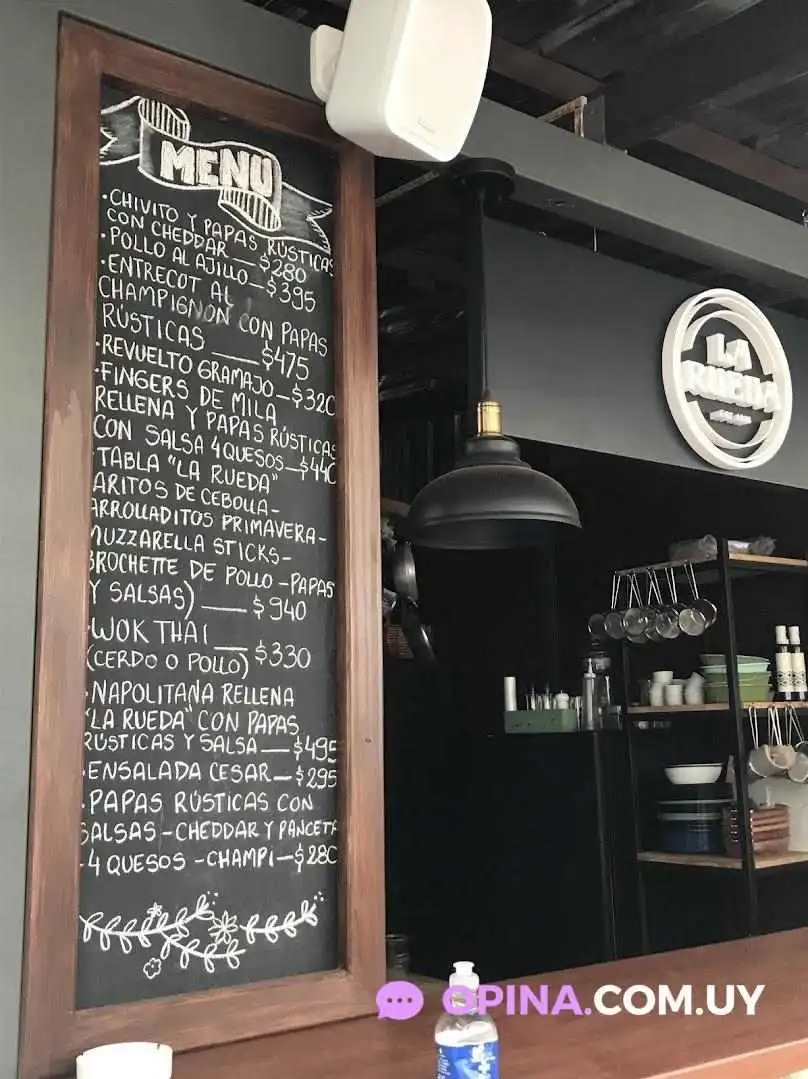 MENU
·CHIVITO Y PAPAS RÚSTICAS
CON CHEDDAR — $280
·POLLO AL AJILLO — $395
·ENTRECOT AL
CHAMPIGNON CON PAPAS
RÚSTICAS — $475
·REVUELTO GRAMAJO — $320
·FINGERS DE MILA
RELLENA Y PAPAS RÚSTICAS
CON SALSA 4 QUESOS — $440
·TABLA "LA RUEDA"
ARITOS DE CEBOLLA -
ARROLLADITOS PRIMAVERA -
MUZZARELLA STICKS -
BROCHETTE DE POLLO - PAPAS
Y SALSAS) — $940
·WOK THAI
(CERDO O POLLO) — $330
·NAPOLITANA RELLENA
"LA RUEDA" CON PAPAS
RÚSTICAS Y SALSA — $495
·ENSALADA CESAR — $295
·PAPAS RÚSTICAS CON
SALSAS - CHEDDAR Y PANCETA
-4 QUESOS - CHAMPI — $280
LA
RUEDA
OPINA.COM.UY